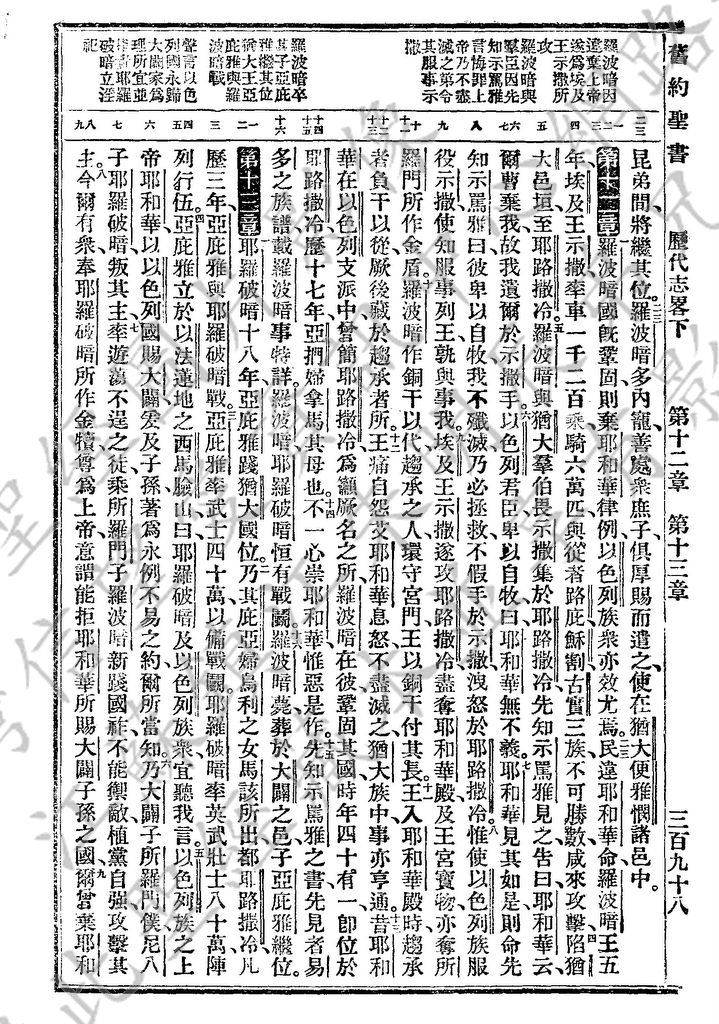 舊約聖書 歷代志畧下 第十二章 第十三章 三百九十八
羅波暗因
違棄上帝
遂爲埃及
王示撒所
攻
羅波暗與
羣臣因先
知示罵雅
言悔罪上
帝乃不盡
滅之第令
其服事示
撒
羅波暗卒
其子亞庇
雅繼其位
猶大王亞
庇雅與羅
波暗戰
聲言以色
列國永歸
大闢家爲
理所宜並
昆弟間將繼其位羅波暗多內寵善處衆庶子俱厚賜而遣之使在猶大便雅憫諸邑中
第十二章羅波暗國旣鞏固則棄耶和華律例以色列族衆亦效尤焉民違耶和華命羅波暗王五
年埃及王示撒率車一千二百乘騎六萬匹與從者路庇穌割古實三族不可勝數咸來攻擊陷猶
大邑垣至耶路撒冷羅波暗與猶大羣伯畏示撒集於耶路撒冷先知示罵雅見之告曰耶和華云
爾曹棄我故我遺爾於示撒手以色列君臣卑以自牧曰耶和華無不義耶和華見其如是則命先
知示罵雅曰彼卑以自牧我不殲滅乃必拯救不假手於示撒洩怒於耶路撒冷惟使以色列族服
役示撒使知服事列王孰與事我埃及王示撒遂攻耶路撒冷盡奪耶和華殿及王宮寶物亦奪所
羅門所作金盾羅波暗作銅干以代趨承之人環守宮門王以銅干付其長王入耶和華殿時趨承
者負干以從厥後藏於趨承者所王痛自怨艾耶和華息怒不盡滅之猶大族中事亦亨通昔耶和
華在以色列支派中曾簡耶路撒冷爲籲厥名之所羅波暗在彼鞏固其國時年四十有一卽位於
耶路撒冷歷十七年亞捫婦拿馬其母也不一心崇耶和華惟惡是作先知示罵雅之書先見者易
多之族譜載羅波暗事特詳羅波暗耶羅破暗恒有戰鬭羅波暗薨葬於大闢之邑子亞庇雅繼位
第十三章耶羅破暗十八年亞庇雅踐猶大國位乃其庇亞婦烏利之女馬該所出都耶路撒冷凡
歷三年亞庇雅與耶羅破暗戰亞庇雅率武士四十萬以備戰鬭耶羅破暗率英武壯士八十萬陣
列行伍亞庇雅立於以法蓮地之西馬臉山曰耶羅破暗及以色列族衆宜聽我言以色列族之上
帝耶和華以以色列國賜大闢爰及子孫著爲永例不易之約爾所當知乃大闢子所羅門僕尼八
子耶羅破暗叛其主率遊蕩不逞之徒乘所羅門子羅波暗新踐國祚不能禦敵植黨自強攻擊其
主今爾有衆奉耶羅破暗所作金犢尊爲上帝意謂能拒耶和華所賜大闢子孫之國爾曾棄耶和